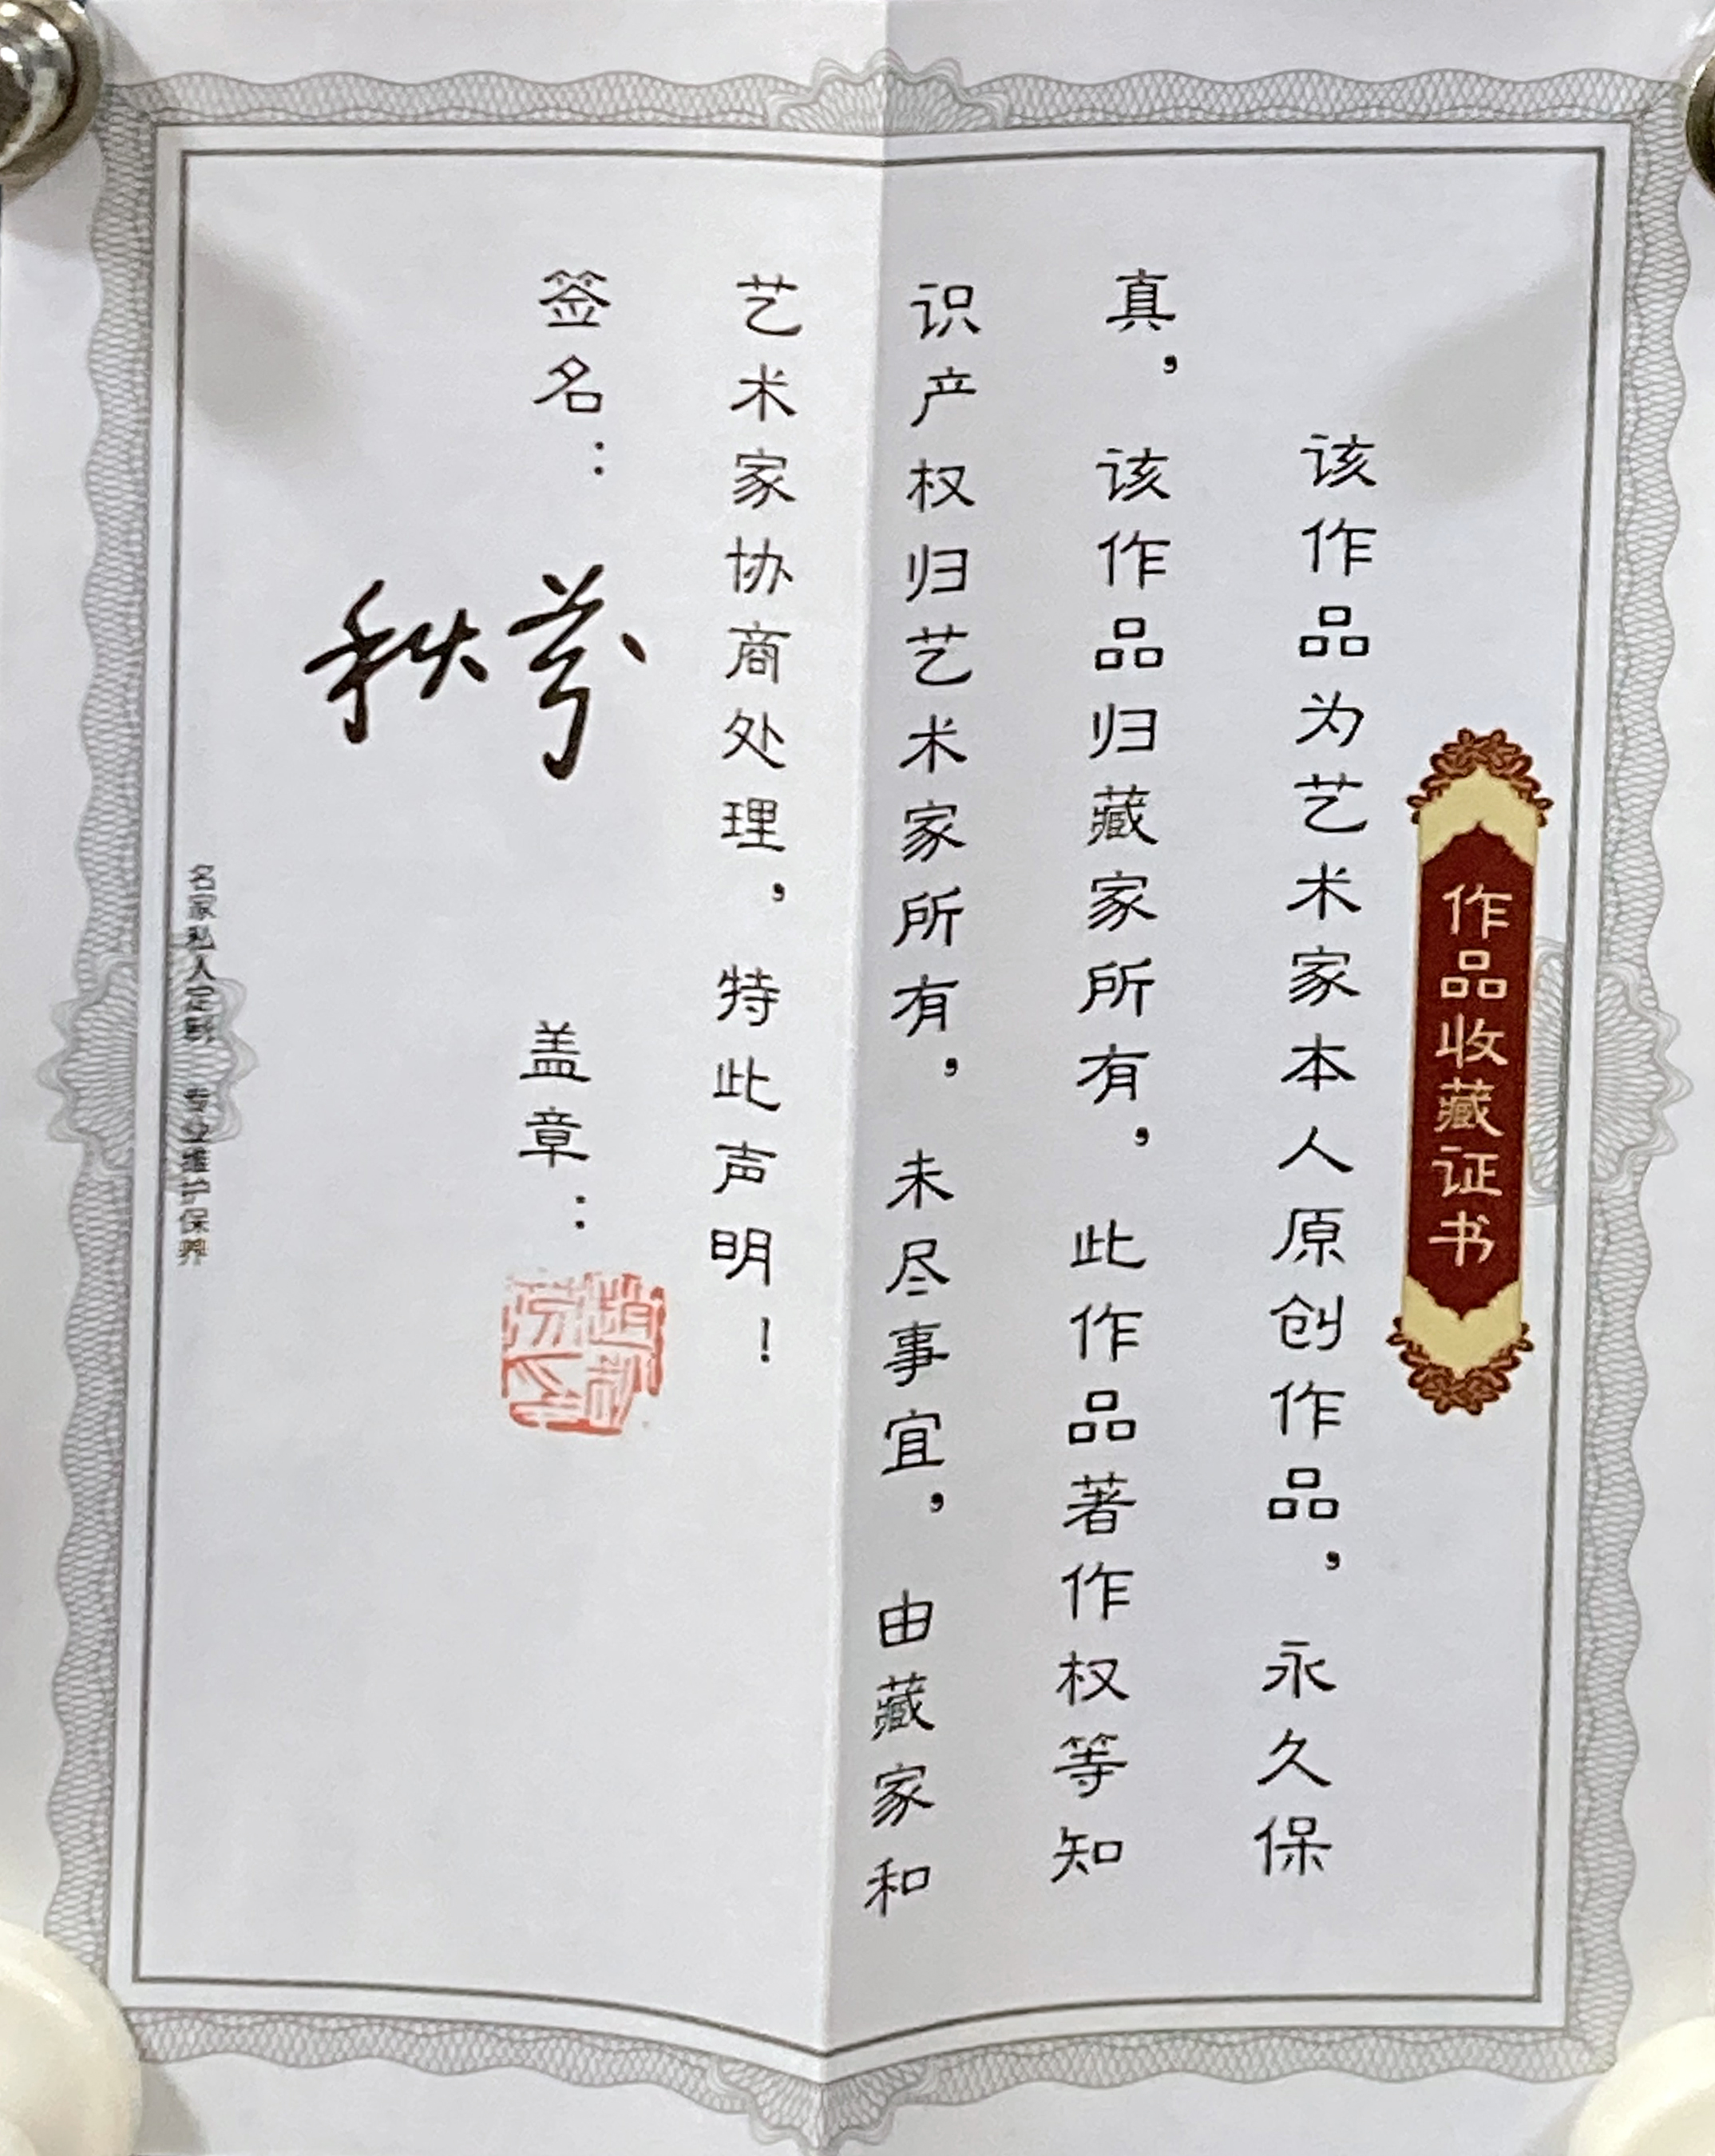 作品收藏证书
该作品为艺术家本人原创作品，永久保
真，该作品归藏家所有，此作品著作权等知
识产权归艺术家所有，未尽事宜，由藏家和
艺术家协商处理，特此声明！
签名：秋芬
盖章：
名家私人定制 专业维护保养